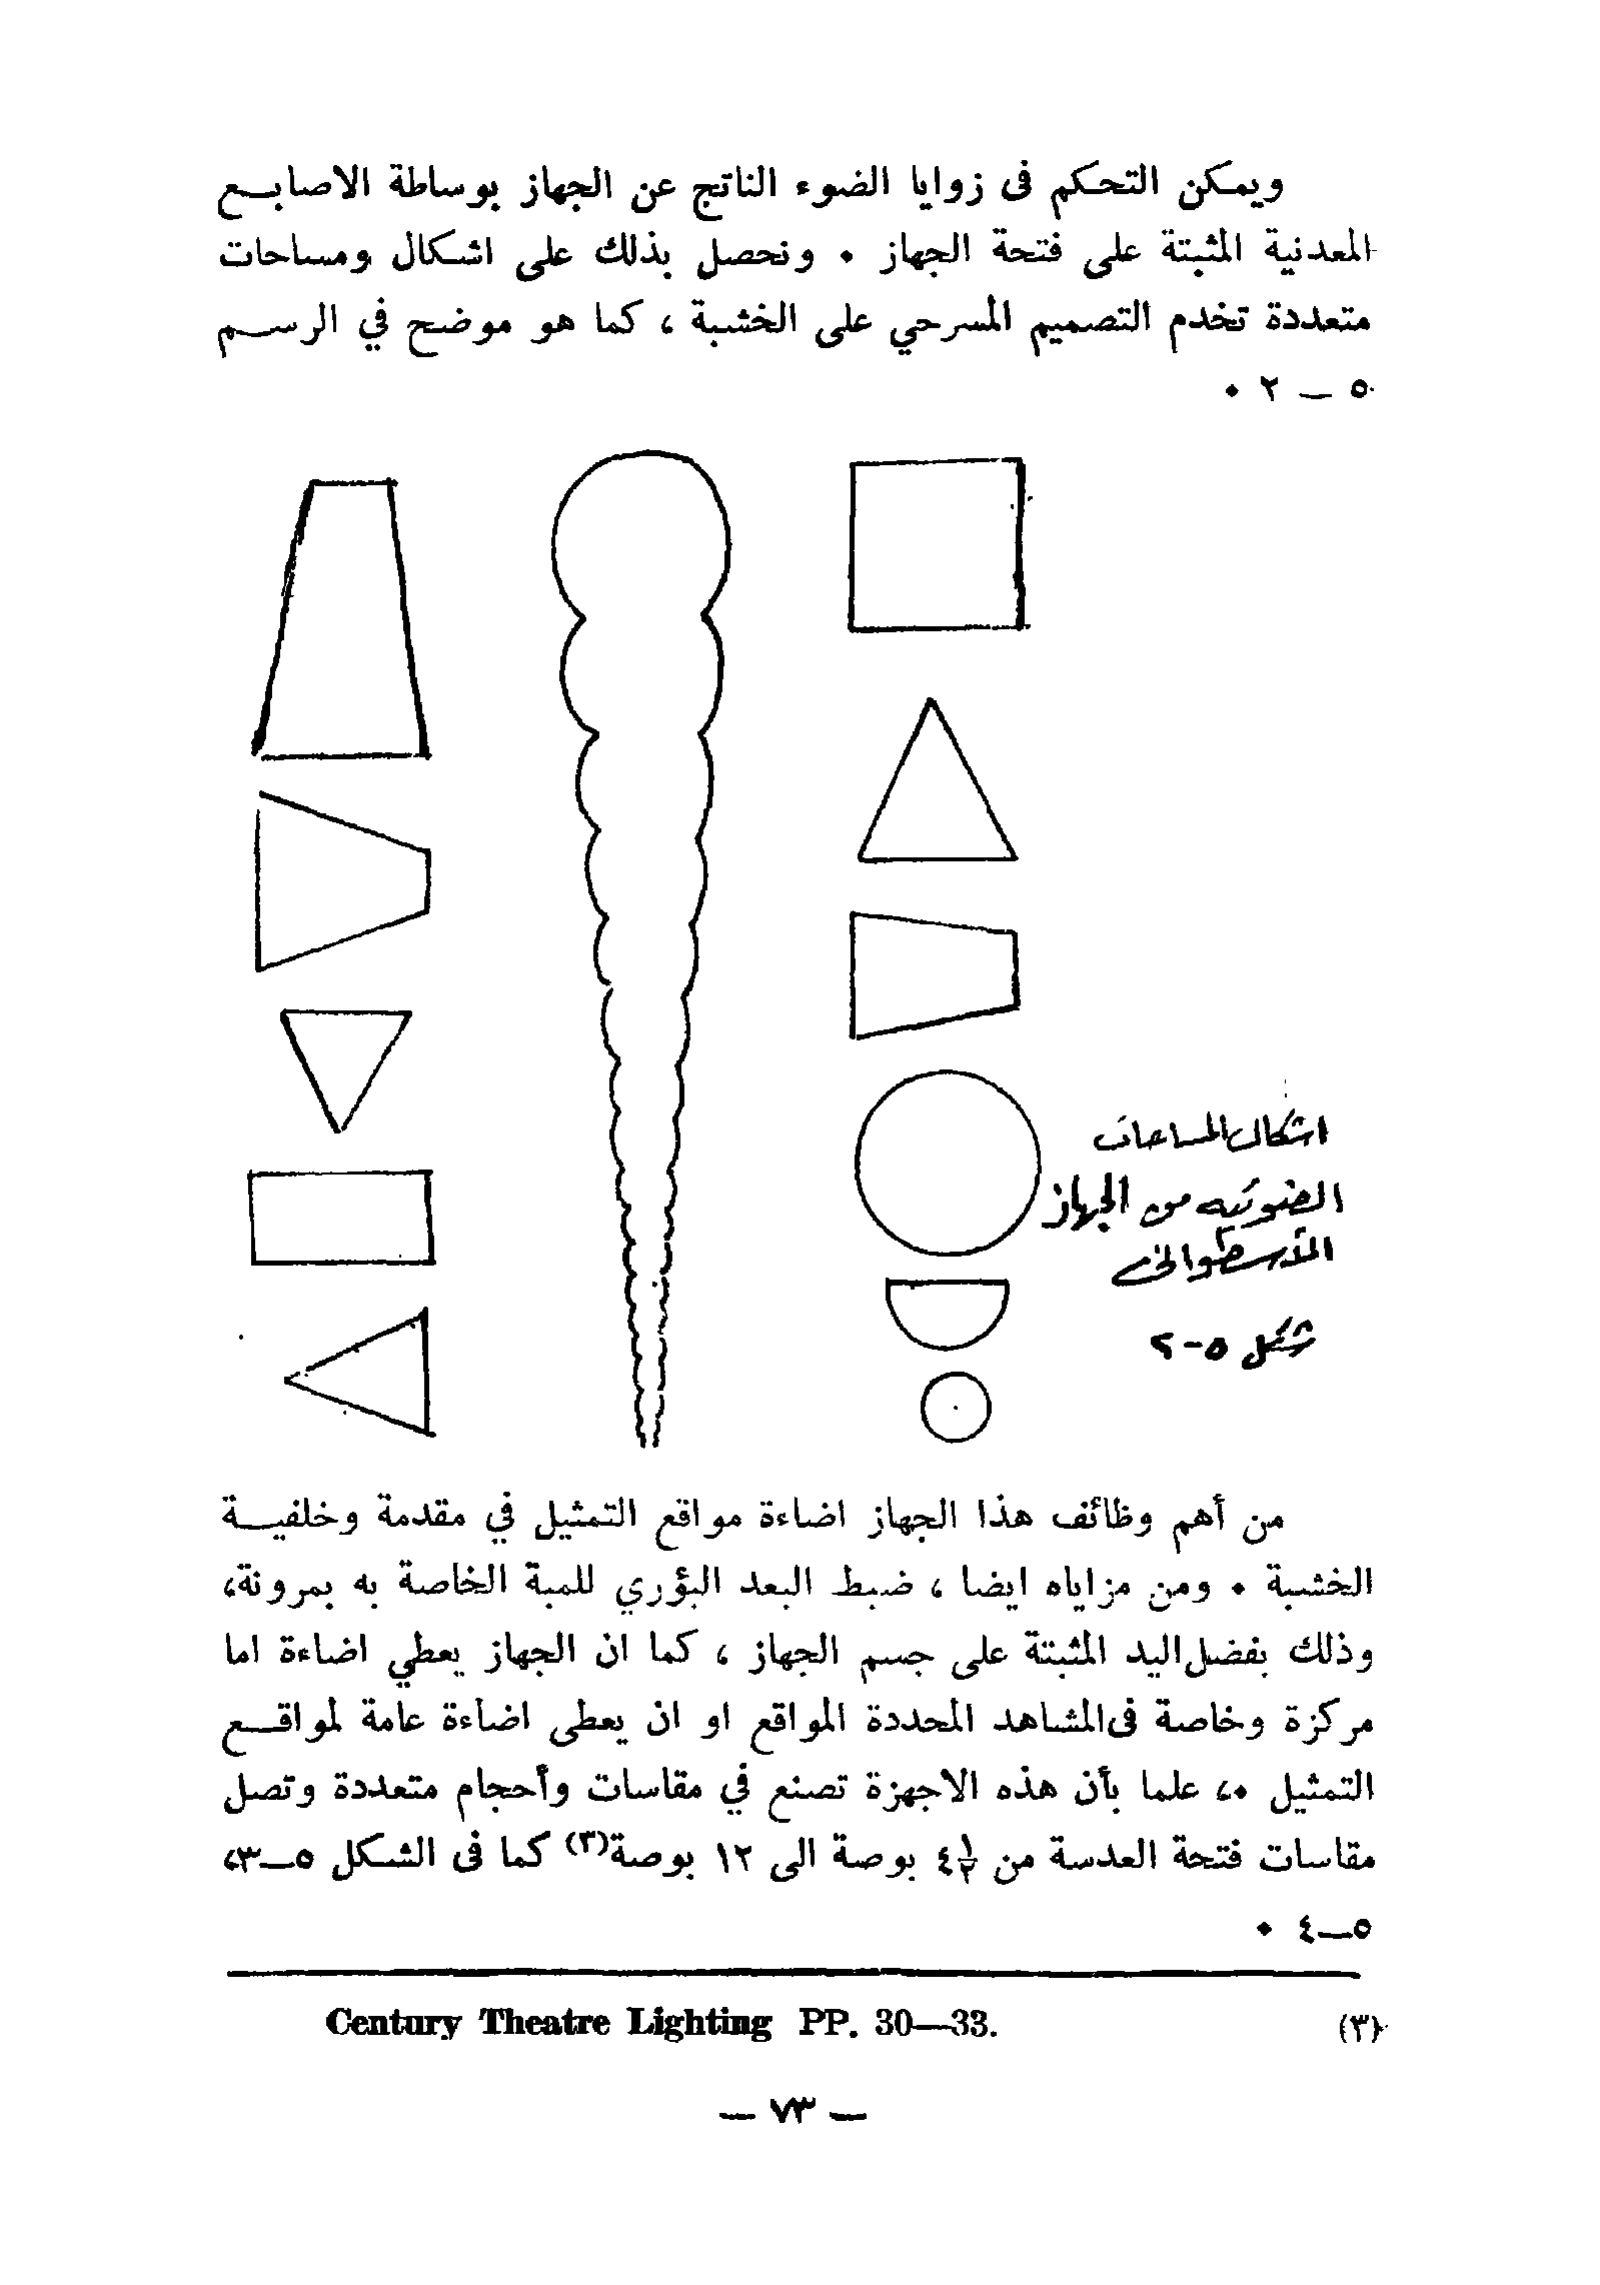 ويمكن التحكم فى زوايا الضوء الناتج عن الجهاز بوساطة الاصابع
المعدنية المثبتة على فتحة الجهاز . ونحصل بذلك على اشكال ومساحات
متعددة تخدم التصميم المسرحي على الخشبة ، كما هو موضح في الرسم
٥ – ٢ .
اشكال المساحات
الضوئيه من الجهاز
الأسطوانى
شكل ٥-٢
من أهم وظائف هذا الجهاز اضاءة مواقع التمثيل في مقدمة وخلفية
الخشبة . ومن مزاياه ايضا ، ضبط البعد البؤري للمبة الخاصة به بمرونة،
وذلك بفضل اليد المثبتة على جسم الجهاز ، كما ان الجهاز يعطي اضاءة اما
مركزة وخاصة فى المشاهد المحددة المواقع او ان يعطى اضاءة عامة لمواقع
التمثيل .، علما بأن هذه الاجهزة تصنع في مقاسات وأحجام متعددة وتصل
مقاسات فتحة العدسة من ٤½ بوصة الى ١٢ بوصة(٣) كما فى الشكل ٥–٣،
٥–٤ .
(٣) Century Theatre Lighting PP. 30—33.
– ٧٣ –